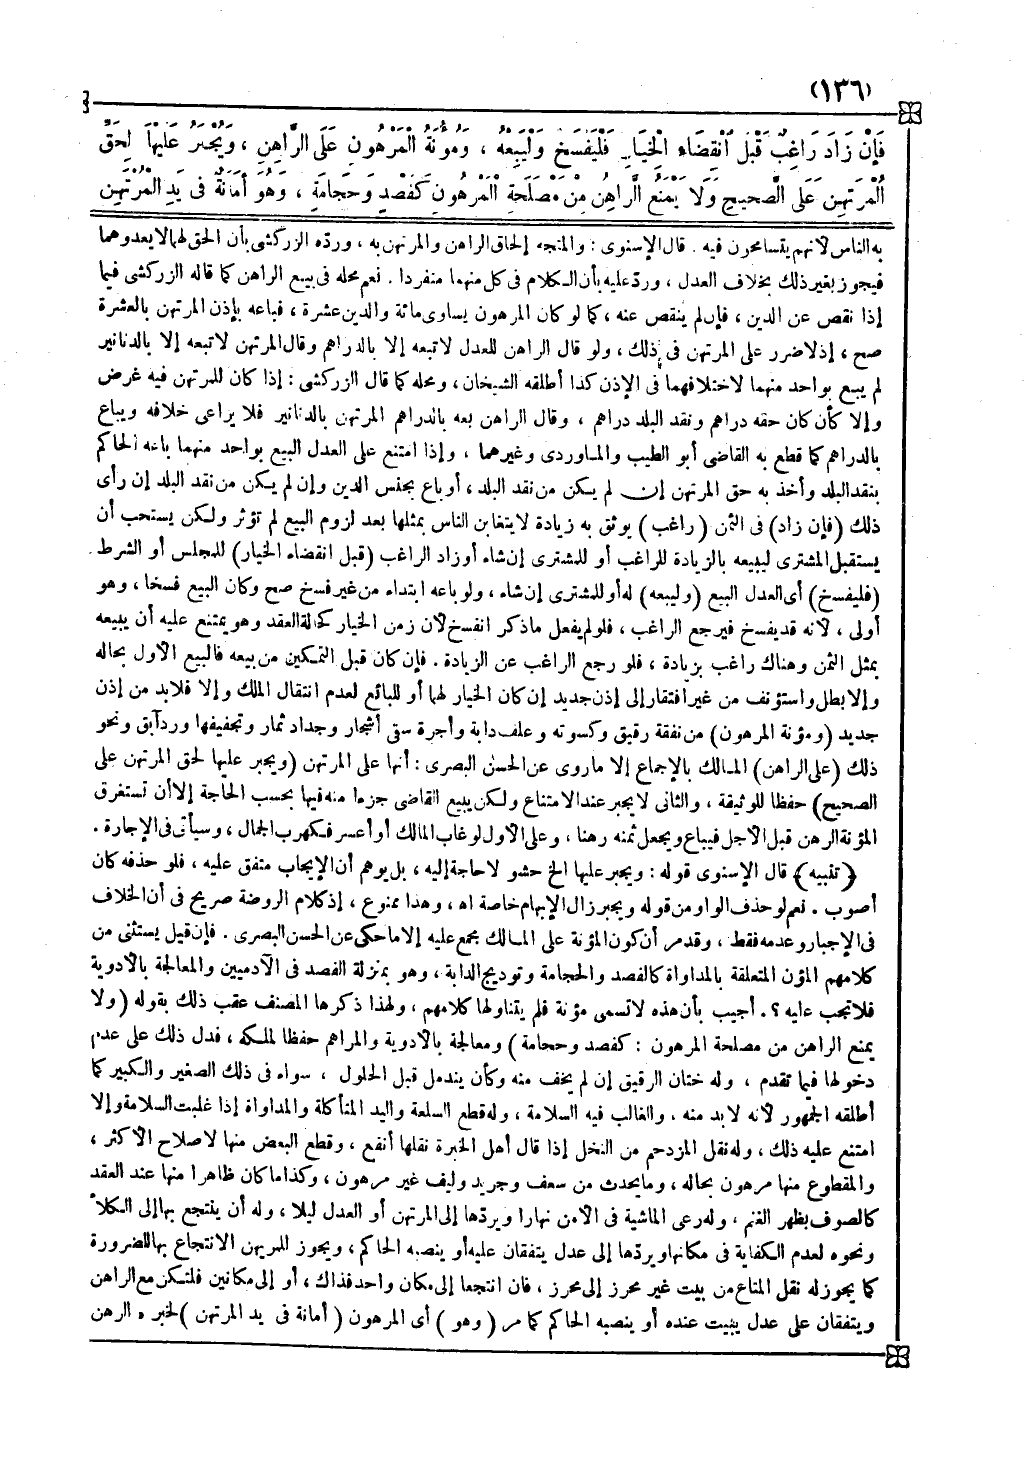 (١٣٦)
فَإِنْ زَادَ رَاغِبٌ قَبْلَ انْقِضَاءِ الْخِيَارِ فَلْيَفْسَخْ وَلْيَبِعْهُ ، وَمُؤْنَةُ الْمَرْهُونِ عَلَى الرَّاهِنِ ، وَيُجْبَرُ عَلَيْهَا لِحَقِّ
الْمُرْتَهِنِ عَلَى الصَّحِيحِ وَلَا يُمْنَعُ الرَّاهِنُ مِنْ مَصْلَحَةِ الْمَرْهُونِ كَفَصْدٍ وَحَجَامَةٍ ، وَهُوَ أَمَانَةٌ فِى يَدِ الْمُرْتَهِنِ
به الناس لأنهم يتسامحون فيه . قال الإسنوى : والمتجه إلحاق الراهن والمرتهن به ، ورده الزركشى بأن الحق لهما لا يعدوهما
فيجوز بغير ذلك بخلاف العدل ، ورد عليه بأن الكلام فى كل منهما منفردا . نعم محله فى بيع الراهن كما قاله الزركشى فيما
إذا نقص عن الدين ، فإن لم ينقص عنه ، كما لو كان المرهون يساوى مائة والدين عشرة ، فباعه بإذن المرتهن بالعشرة
صح ، إذ لا ضرر على المرتهن فى ذلك ، ولو قال الراهن للعدل لا تبعه إلا بالدراهم وقال المرتهن لا تبعه إلا بالدنانير
لم يبع بواحد منهما لاختلافهما فى الإذن كذا أطلقه الشيخان ، ومحله كما قال الزركشى : إذا كان للمرتهن فيه غرض
وإلا كأن كان حقه دراهم ونقد البلد دراهم ، وقال الراهن بعه بالدراهم المرتهن بالدنانير فلا يراعى خلافه ويباع
بالدراهم كما قطع به القاضى أبو الطيب والماوردى وغيرهما ، وإذا امتنع على العدل البيع بواحد منهما باعه الحاكم
بنقد البلد وأخذ به حق المرتهن إن لم يكن من نقد البلد ، أو باع بجنس الدين وإن لم يكن من نقد البلد إن رأى
ذلك (فإن زاد) فى الثمن (راغب) يوثق به زيادة لا يتغابن الناس بمثلها بعد لزوم البيع لم تؤثر ولكن يستحب أن
يستقيل المشترى ليبيعه بالزيادة للراغب أو للمشترى إن شاء أو زاد الراغب (قبل انقضاء الخيار) للمجلس أو الشرط
(فليفسخ) أى العدل البيع (وليبعه) له أو للمشترى إن شاء ، ولو باعه ابتداء من غير فسخ صح وكان البيع فسخا ، وهو
أولى ، لأنه قد يفسخ فيرجع الراغب ، فلو لم يفعل ما ذكر انفسخ لأن زمن الخيار كحالة العقد وهو يمتنع عليه أن يبيعه
بمثل الثمن وهناك راغب بزيادة ، فلو رجع الراغب عن الزيادة . فإن كان قبل التمكن من بيعه فالبيع الأول بحاله
وإلا بطل واستؤنف من غير افتقار إلى إذن جديد إن كان الخيار لهما أو للبائع لعدم انتقال الملك وإلا فلا بد من إذن
جديد (ومؤنة المرهون) من نفقة رقيق وكسوته وعلف دابة وأجرة سقى أشجار وجداد ثمار وتجفيفها ورد آبق ونحو
ذلك (على الراهن) المالك بالإجماع إلا ما روى عن الحسن البصرى : أنها على المرتهن (ويجبر عليها لحق المرتهن على
الصحيح) حفظا للوثيقة ، والثانى لا يجبر عند الامتناع ولكن يبيع القاضى جزءا منه فيها بحسب الحاجة إلا أن تستغرق
المؤنة الرهن قبل الأجل فيباع ويجعل ثمنه رهنا ، وعلى الأول لو غاب المالك أو أعسر فكهرب الجمال ، وسيأتى فى الإجارة .
(تنبيه) قال الإسنوى قوله : ويجبر عليها الخ حشو لا حاجة إليه ، بل يوهم أن الإيجاب متفق عليه ، فلو حذفه كان
أصوب . نعم لو حذف الواو من قوله ويجبر زال الإيهام خاصة اه ، وهذا ممنوع ، إذ كلام الروضة صريح فى أن الخلاف
فى الإجبار وعدمه فقط ، وقد مر أن كون المؤنة على المالك مجمع عليه إلا ما حكى عن الحسن البصرى . فإن قيل يستثنى من
كلامهم المؤن المتعلقة بالمداواة كالفصد والحجامة وتوديج الدابة ، وهو بمنزلة الفصد فى الآدميين والمعالجة بالأدوية
فلا تجب عليه ؟ . أجيب بأن هذه لا تسمى مؤنة فلم يتناولها كلامهم ، ولهذا ذكرها المصنف عقب ذلك بقوله (ولا
يمنع الراهن من مصلحة المرهون : كفصد وحجامة) ومعالجة بالأدوية والمراهم حفظا لملكه ، فدل ذلك على عدم
دخولها فيما تقدم ، وله ختان الرقيق إن لم يخف منه وكأن يندمل قبل الحلول ، سواء فى ذلك الصغير والكبير كما
أطلقه الجمهور لأنه لا بد منه ، والغالب فيه السلامة ، وله قطع السلعة واليد المتأكلة والمداواة إذا غلبت السلامة وإلا
امتنع عليه ذلك ، وله نقل المزدحم من النخل إذا قال أهل الخبرة نقلها أنفع ، وقطع البعض منها لإصلاح الأكثر ،
والمقطوع منها مرهون بحاله ، وما يحدث من سعف وجريد وليف غير مرهون ، وكذا ما كان ظاهرا منها عند العقد
كالصوف بظهر الغنم ، وله رعى الماشية فى الأمن نهارا ويردها إلى المرتهن أو العدل ليلا ، وله أن ينتجع بها إلى الكلأ
ونحوه لعدم الكفاية فى مكانها ويردها إلى عدل يتفقان عليه أو ينصبه الحاكم ، ويجوز للمرتهن الانتجاع بها للضرورة
كما يجوز له نقل المتاع من بيت غير محرز إلى محرز ، فان انتجعا إلى مكان واحد فذاك ، أو إلى مكانين فلتكن مع الراهن
ويتفقان على عدل يبيت عنده أو ينصبه الحاكم كما مر (وهو) أى المرهون (أمانة فى يد المرتهن) لخبر « الرهن